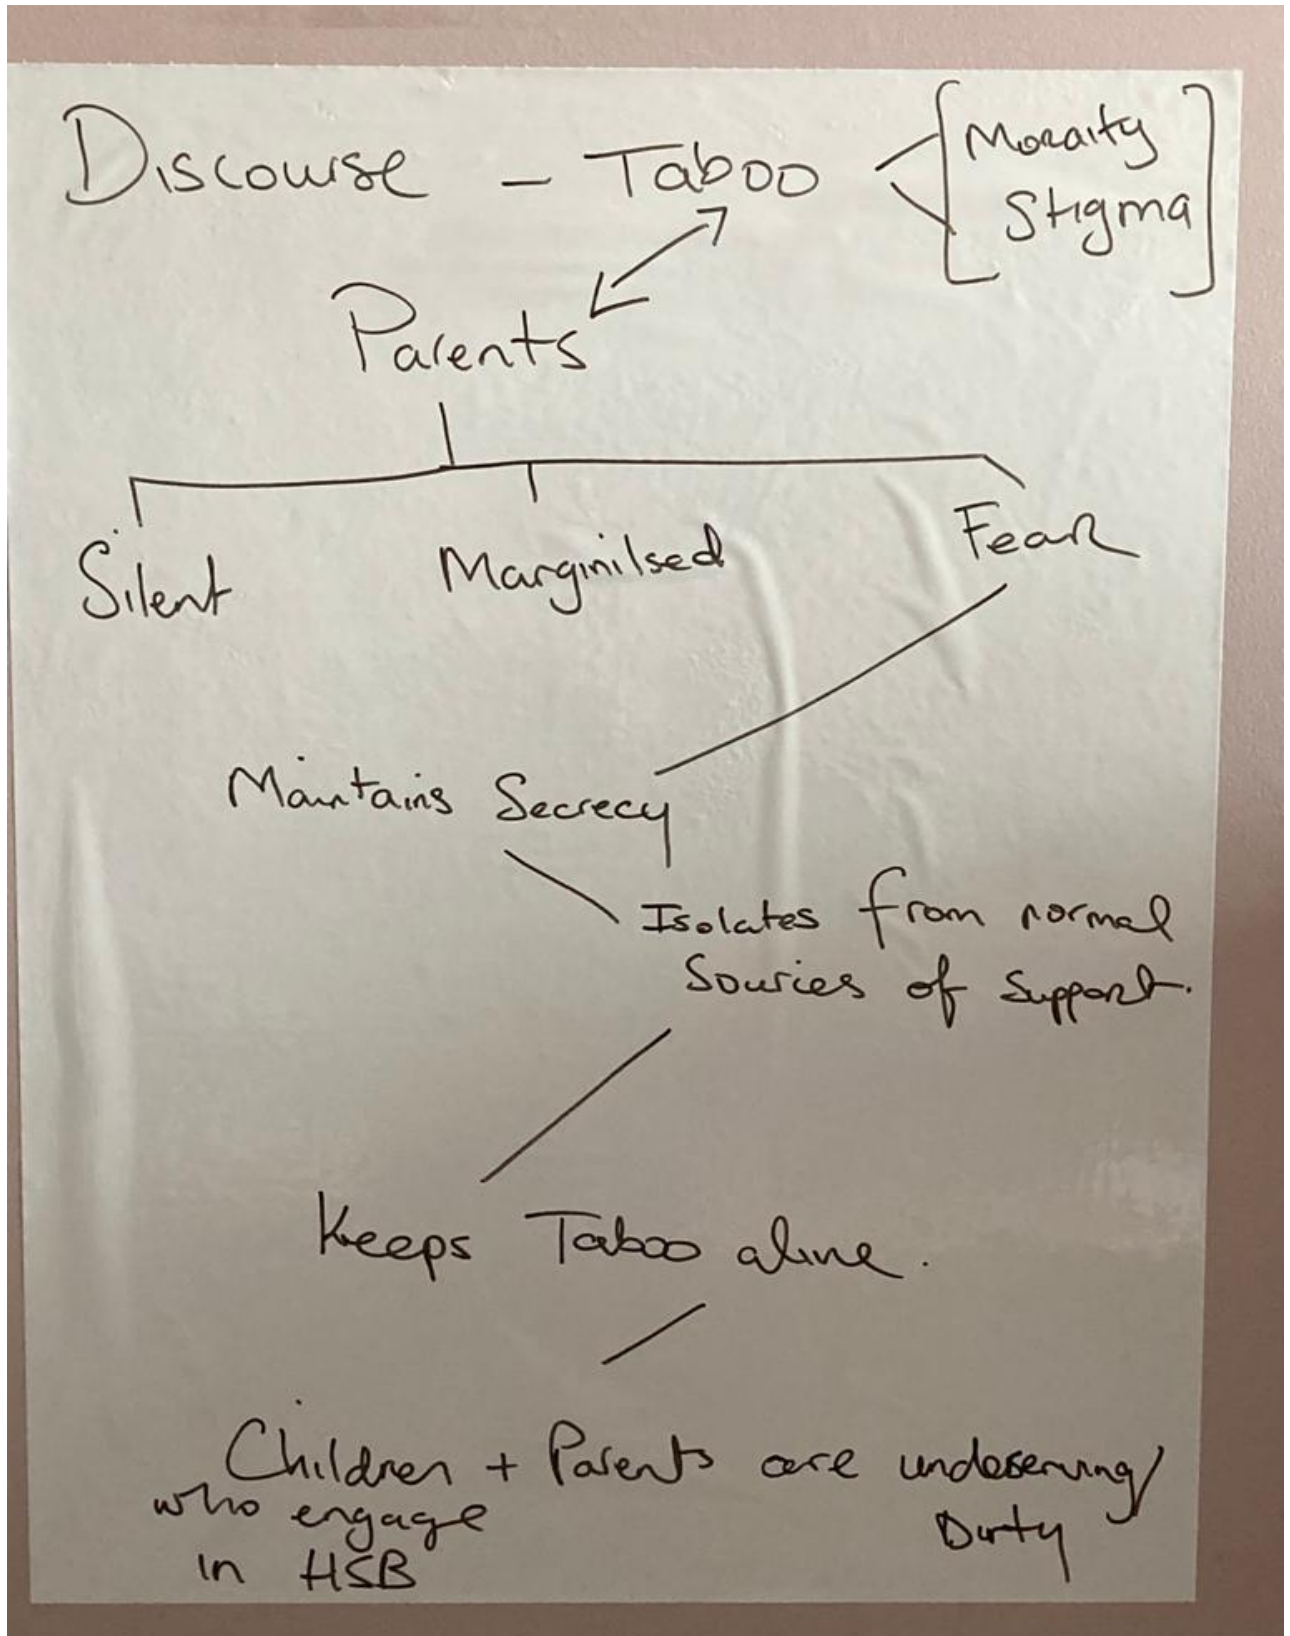 Discourse - Taboo
[Moraity
Stigma]
Parents
Silent Marginilsed Fear
Maintains Secrecy
Isolates from normal
Sources of Support.
Keeps Taboo alive.
Children + Parents are undeserving/
who engage
in HSB
Dirty